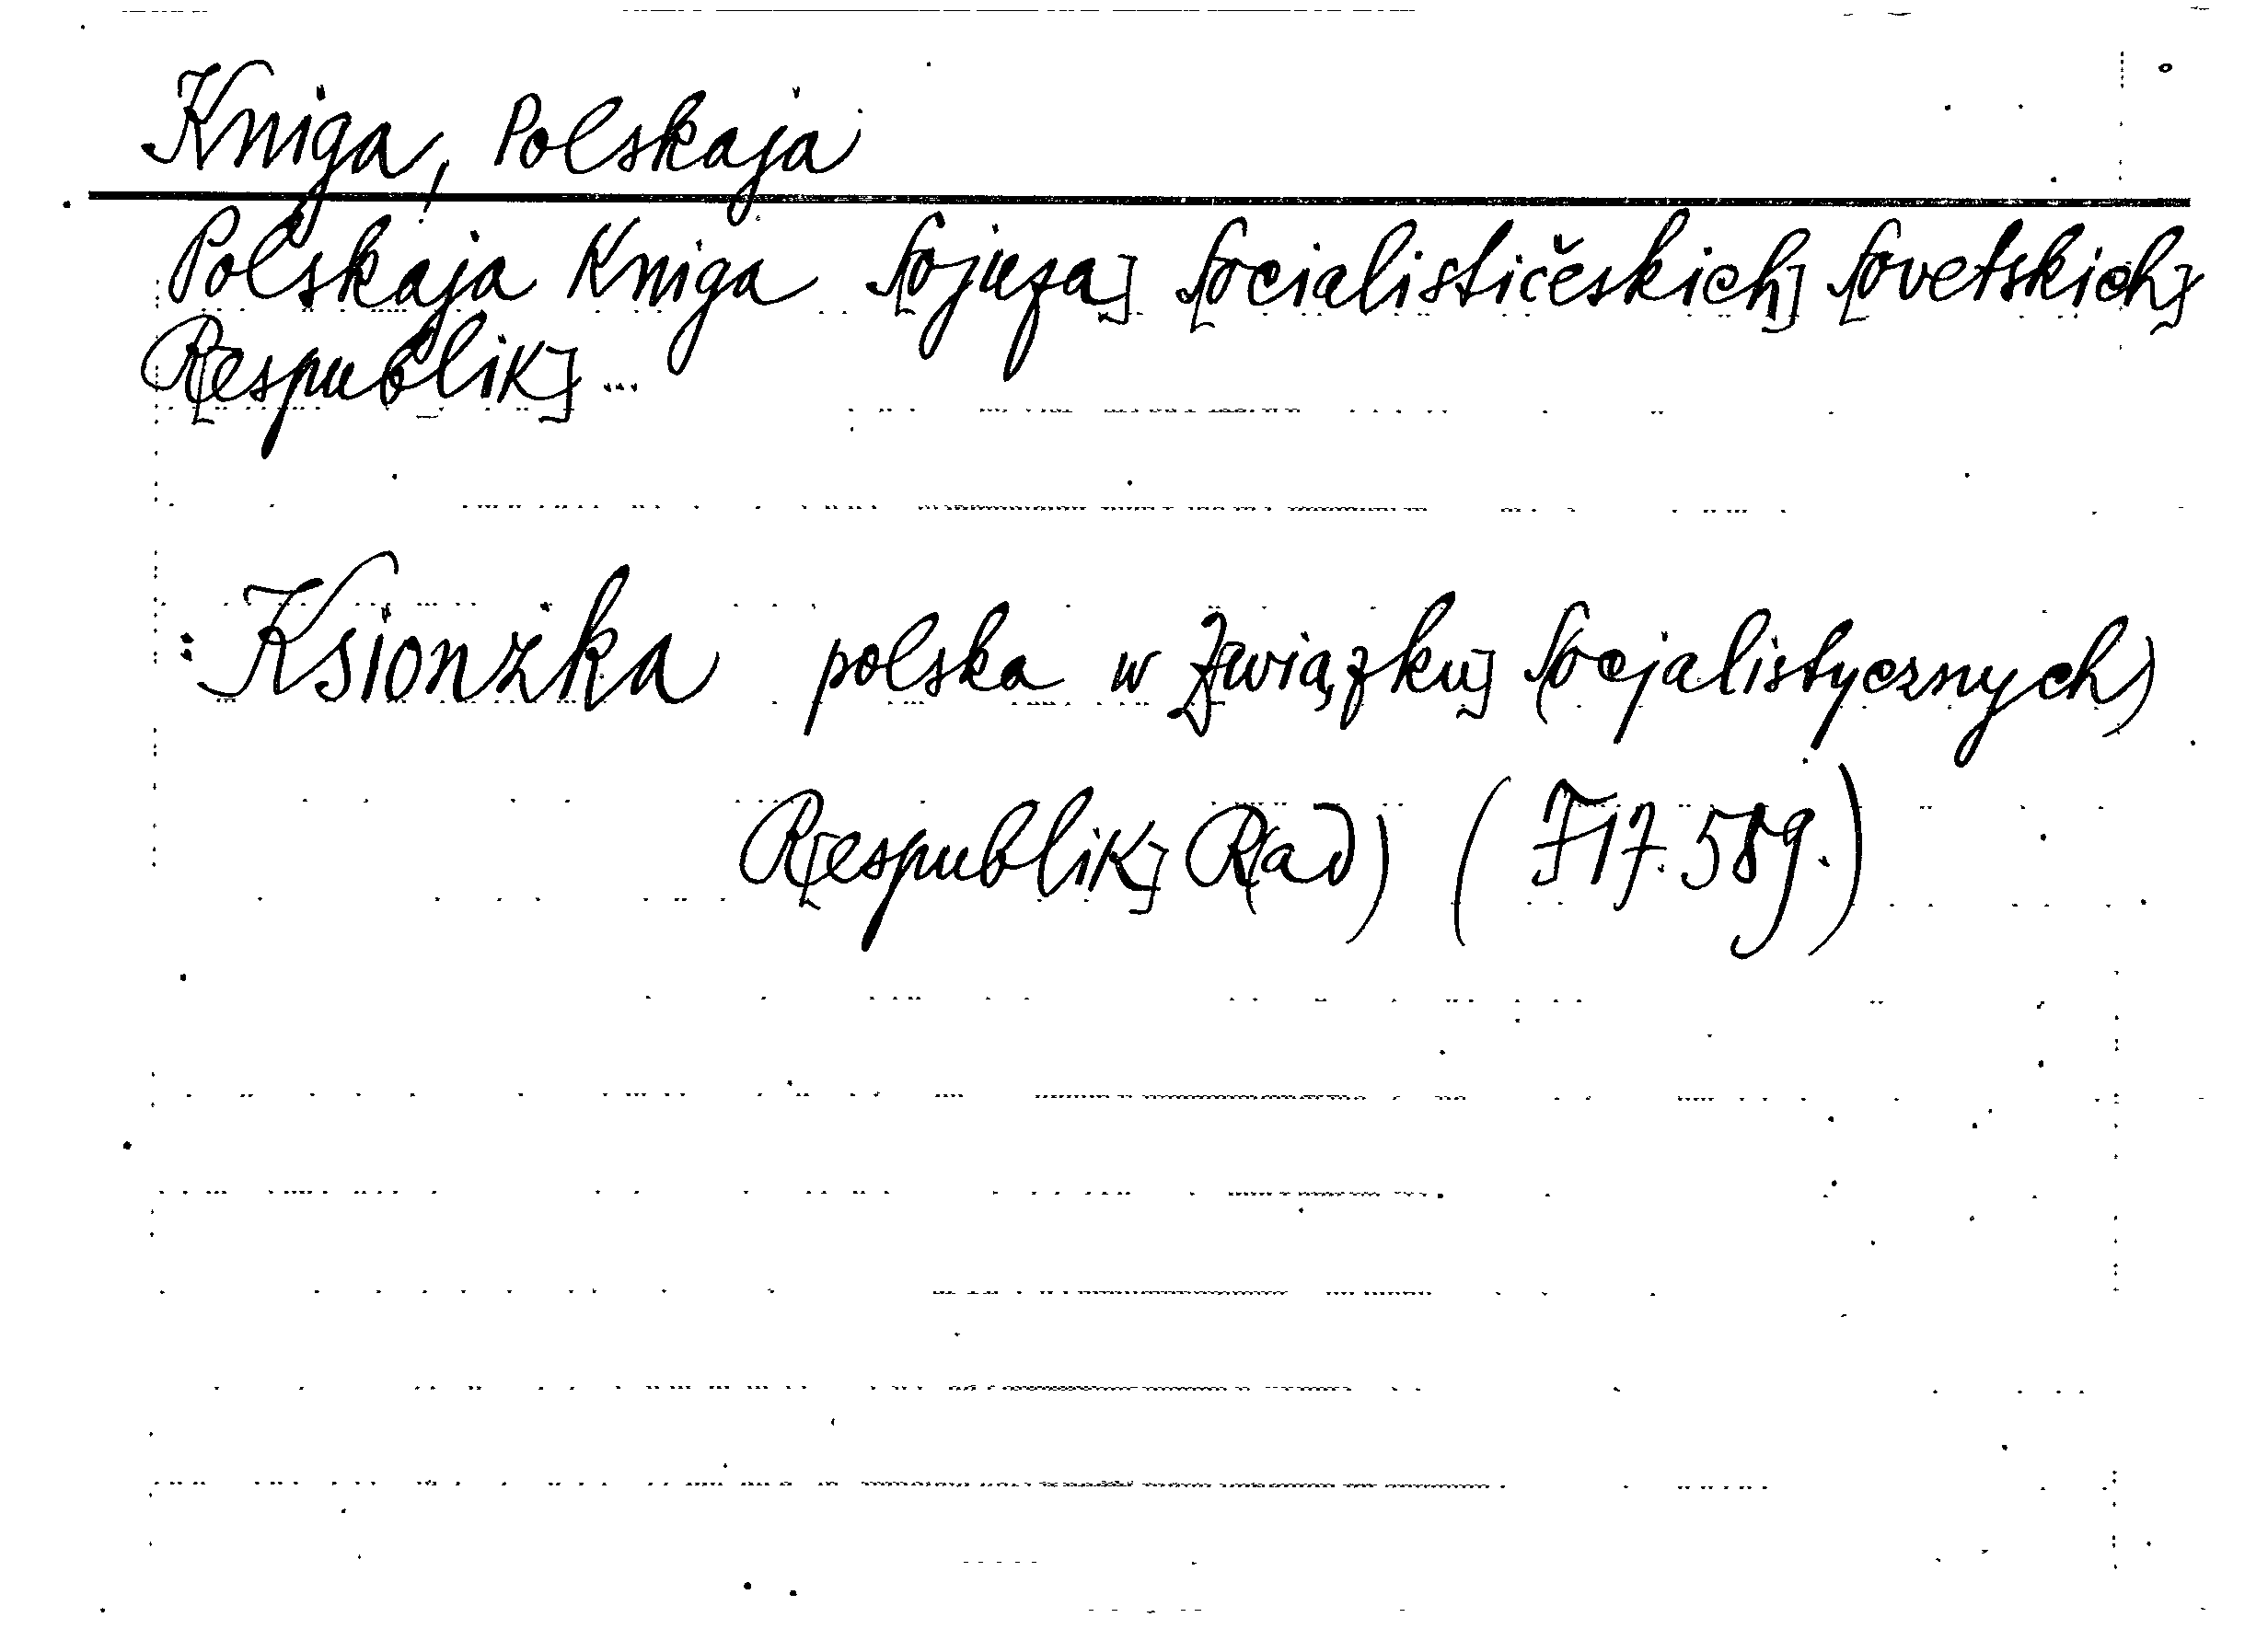 Kniga, Polskaja
Polskaja Kniga S[ojuza] S[ocialističeskich] S[ovetskich]
R[espublik] ...
: Ksionzka polska w Z[wiązku] S(ocjalistycznych)
R[espublik] R(ad) (717.589.)